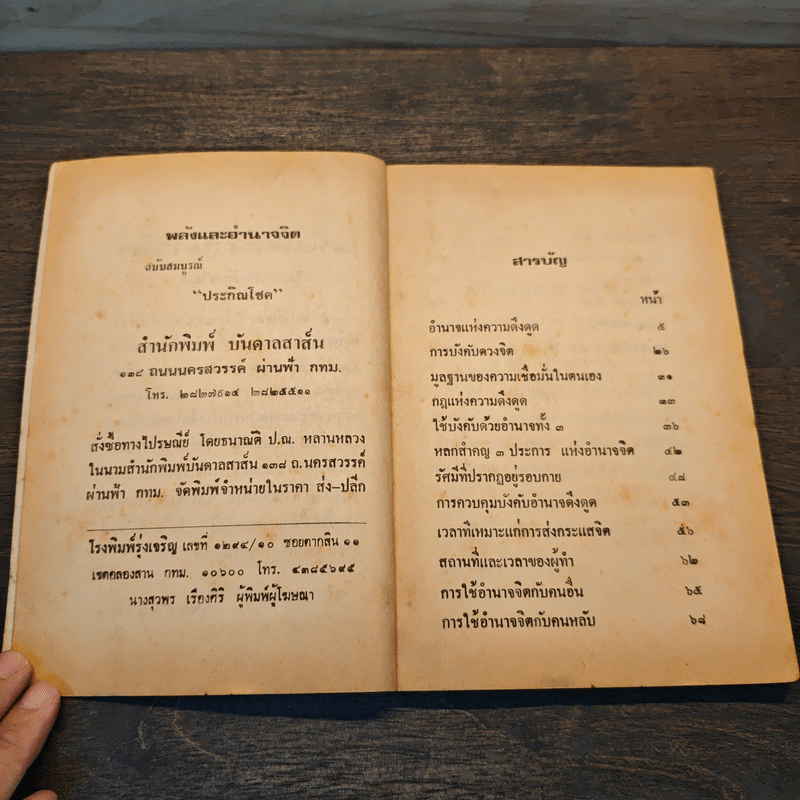 พลังและอำนาจจิต
ฉบับสมบูรณ์
“ประกิณโชค”
สำนักพิมพ์ บันดาลสาส์น
๑๓๘ ถนนนครสวรรค์ ผ่านฟ้า กทม.
โทร. ๒๘๒๗๙๑๔ ๒๘๒๕๕๑๑
สั่งซื้อทางไปรษณีย์ โดยธนาณัติ ป.ณ. หลานหลวง
ในนามสำนักพิมพ์บันดาลสาส์น ๑๓๘ ถ.นครสวรรค์
ผ่านฟ้า กทม. จัดพิมพ์จำหน่ายในราคา ส่ง–ปลีก
โรงพิมพ์รุ่งเจริญ เลขที่ ๑๒๙๔/๑๐ ซอยตากสิน ๑๑
เขตคลองสาน กทม. ๑๐๖๐๐ โทร. ๔๓๘๕๖๙๕
นางสุวพร เรืองศิริ ผู้พิมพ์ผู้โฆษณา
สารบัญ
หน้า
อำนาจแห่งความดึงดูด ๕
การบังคับดวงจิต ๒๖
มูลฐานของความเชื่อมั่นในตนเอง ๓๑
กฎแห่งความดึงดูด ๓๓
ใช้บังคับด้วยอำนาจทั้ง ๓ ๓๖
หลกสำคญ ๓ ประการ แห่งอำนาจจิต ๔๒
รัศมีที่ปรากฏอยู่รอบกาย ๔๘
การควบคุมบังคับอำนาจดึงดูด ๕๓
เวลาที่เหมาะแก่การส่งกระแสจิต ๕๖
สถานที่และเวลาของผู้ทำ ๖๒
การใช้อำนาจจิตกับคนอื่น ๖๕
การใช้อำนาจจิตกับคนหลับ ๖๘